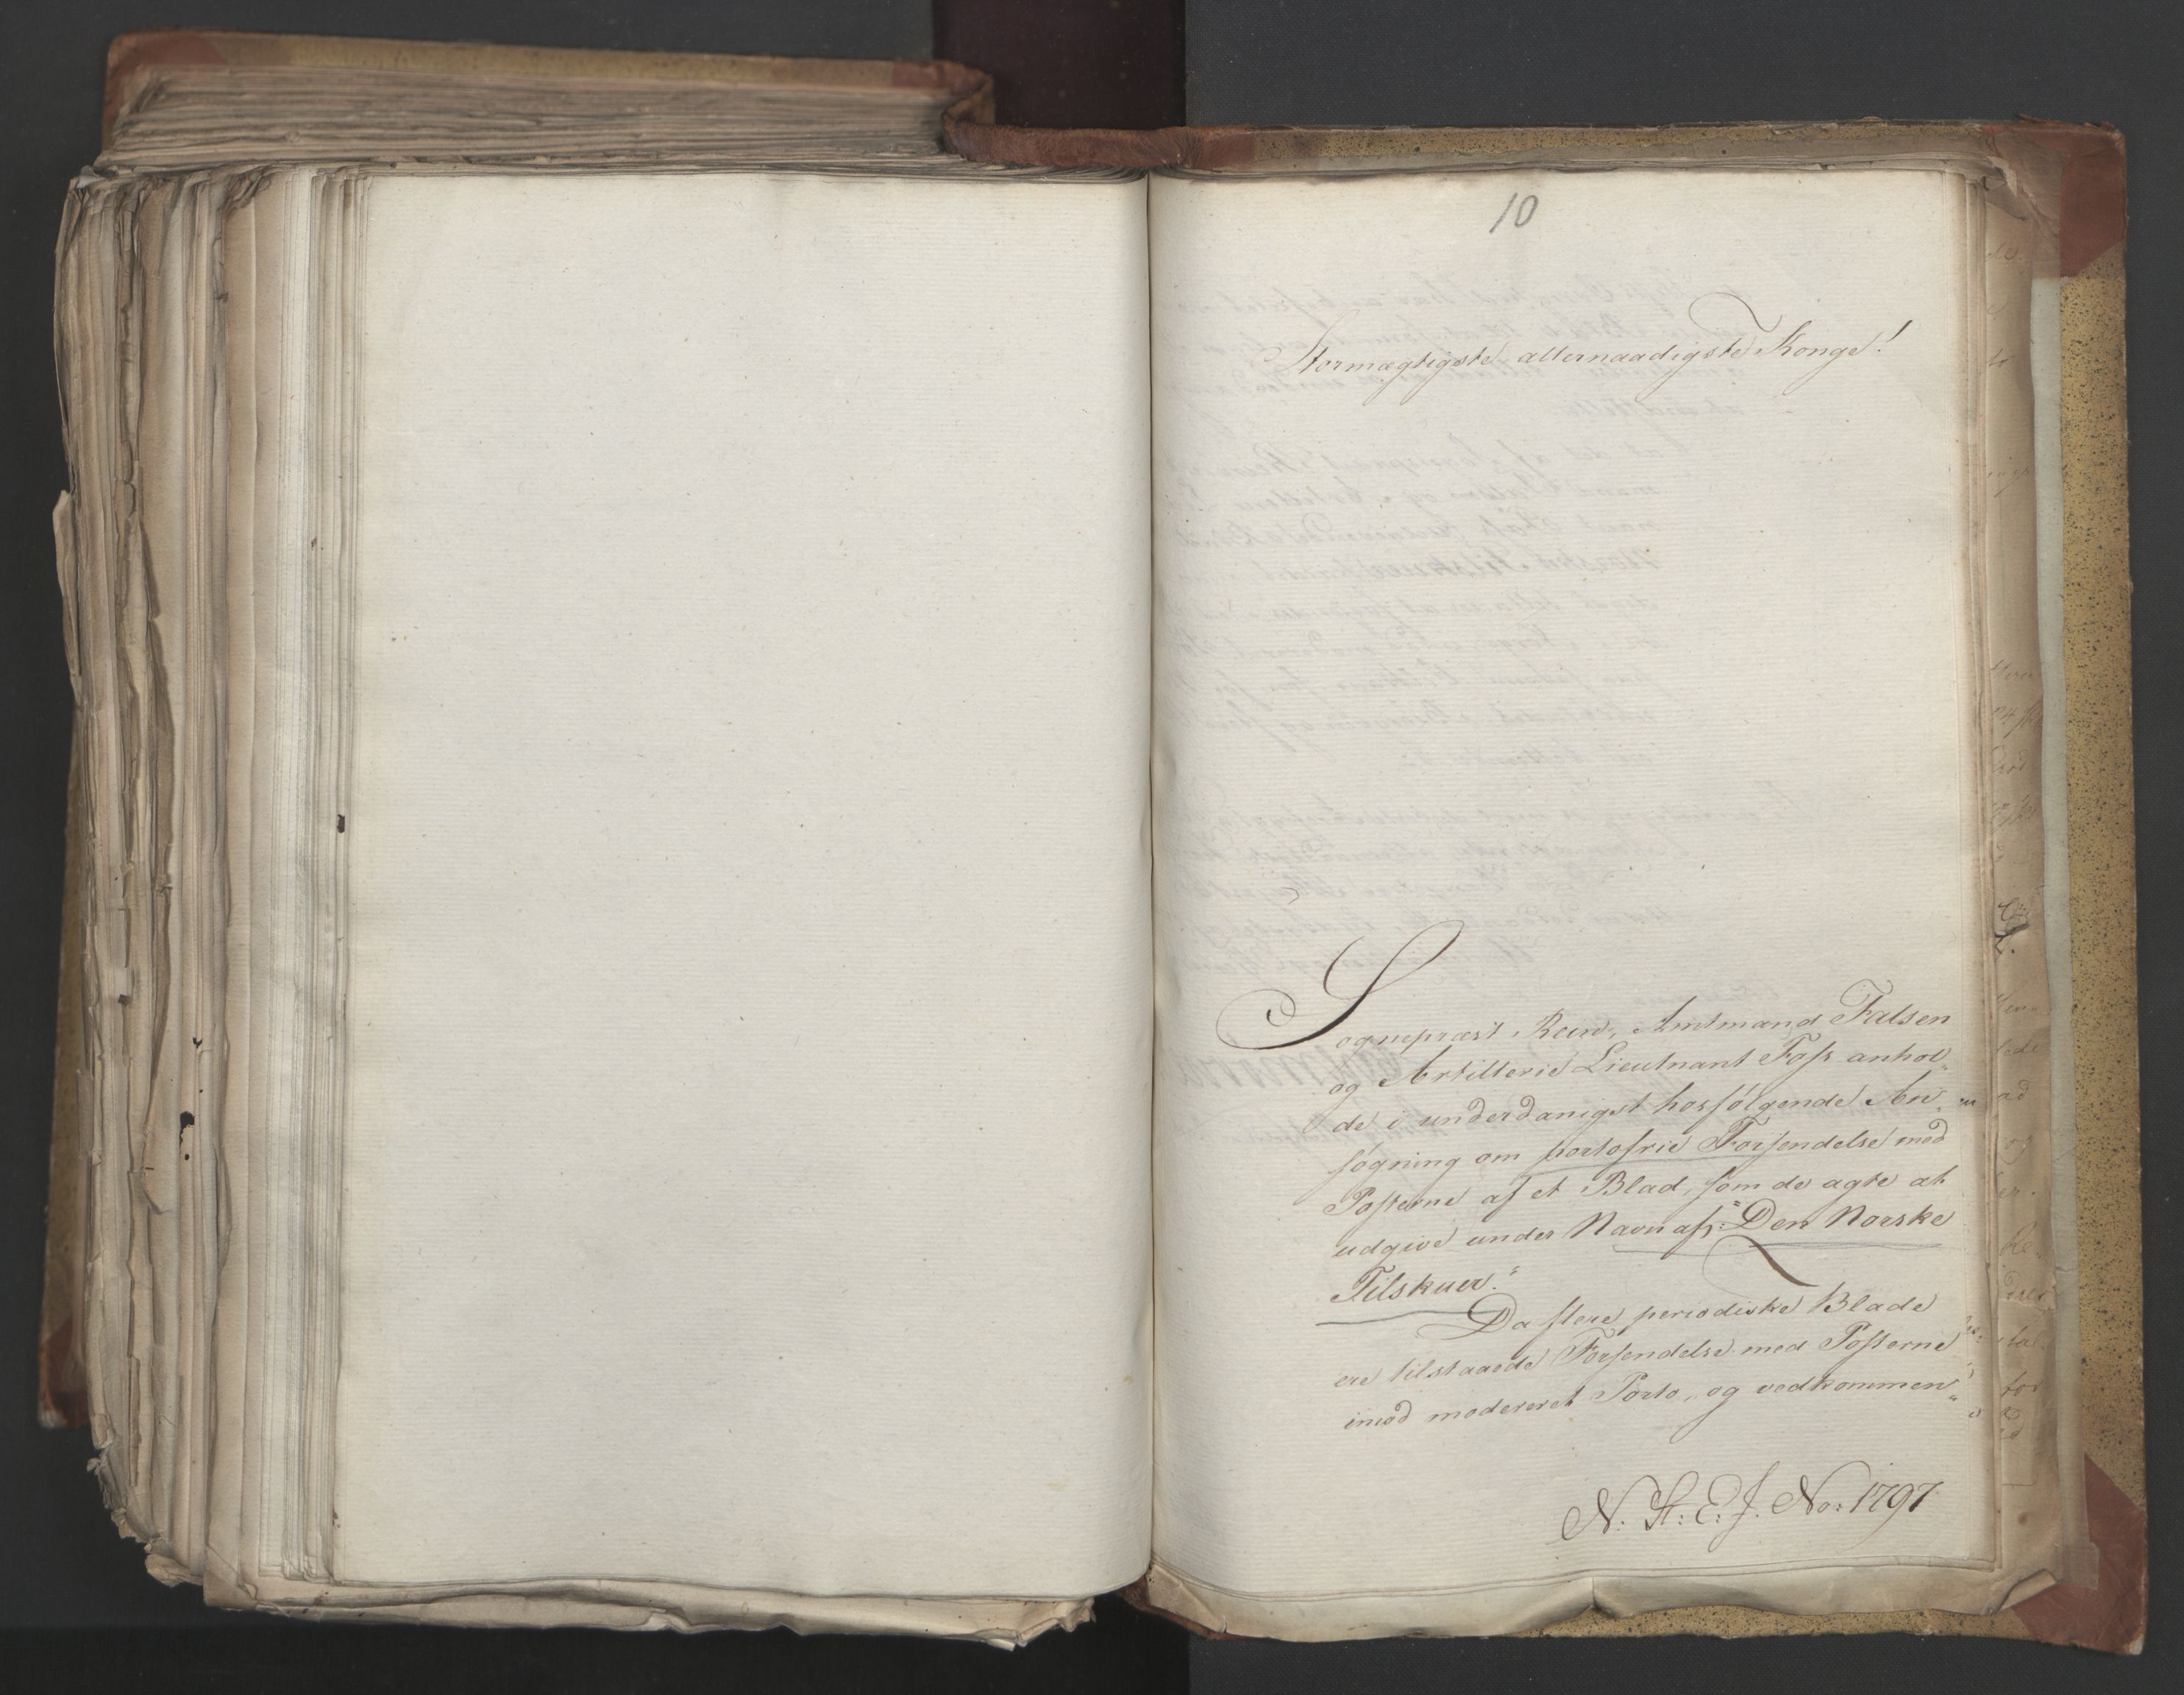 10
Stormægtigste allernaadigste Konge!
Sognepræst Rein, Amtmand Falsen
og Artillerie Lieutnant Foss anhol„
de i underdanigst hosfølgende An„
søgning om portofrie Forsendelse med
Posterne af et Blad, som de agte at
udgive under Navn af: "Den Norske
Tilskuer."
Da flere periodiske Blade
ere tilstaaede Forsendelse med Posterne
imod modereret Porto, og vedkommen„
N. St: E. J. No: 1797